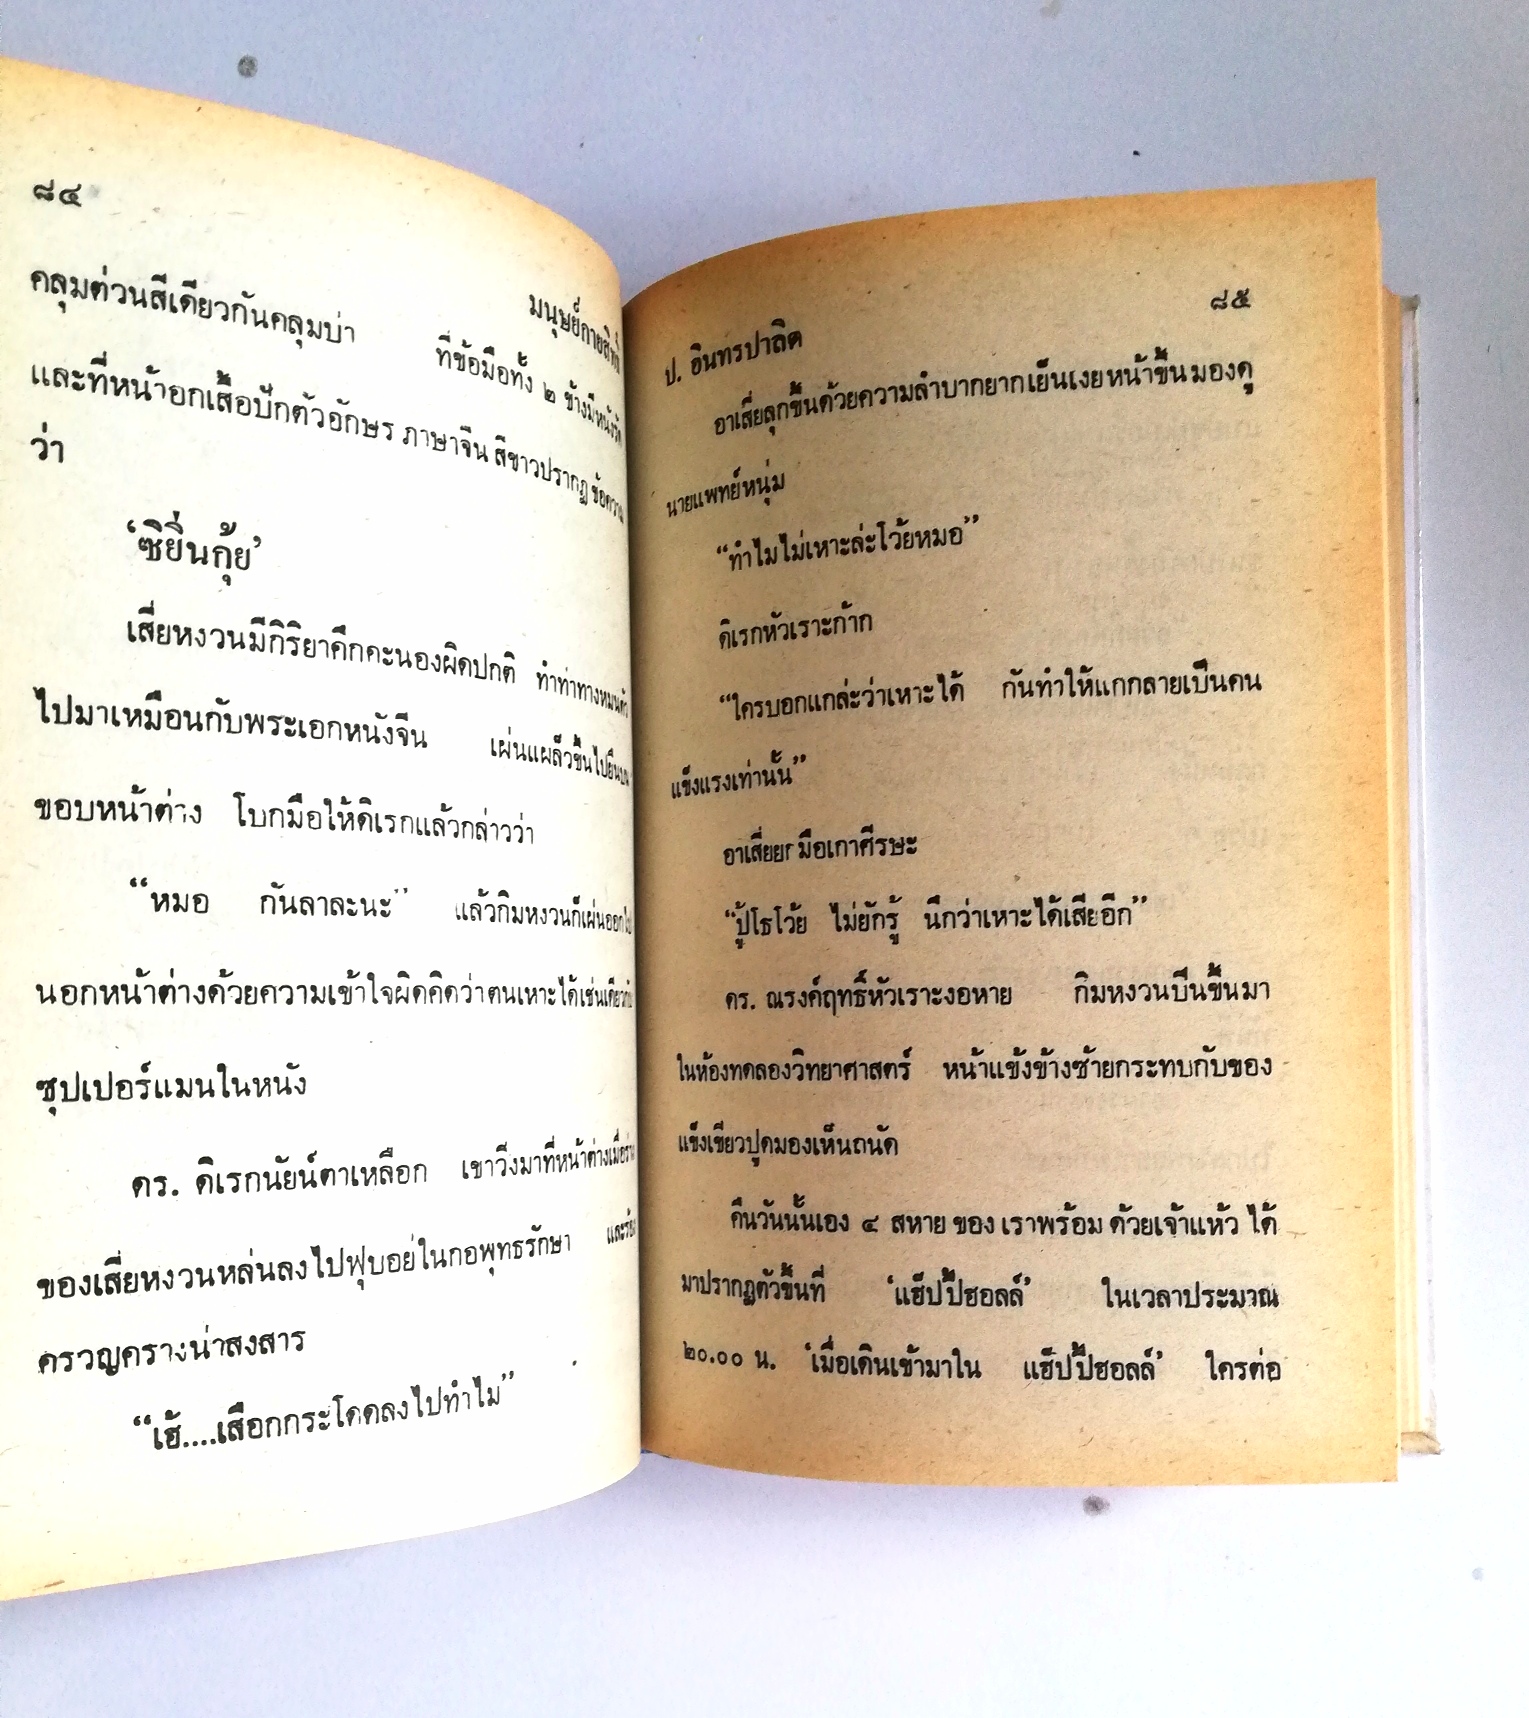 ๘๔
มนุษย์กายสิทธิ์
คลุมต่วนสีเดียวกันคลุมบ่า ที่ข้อมือทั้ง ๒ ข้างมีหนังรัด
และที่หน้าอกเสื้อปักตัวอักษร ภาษาจีน สีขาวปรากฏ ข้อความ
ว่า
‘ซิยิ่นกุ้ย’
เสี่ยหงวนมีกิริยาคึกคะนองผิดปกติ ทำท่าทางหมุนตัว
ไปมาเหมือนกับพระเอกหนังจีน เผ่นแผล็วขึ้นไปยืนบน
ขอบหน้าต่าง โบกมือให้ดิเรกแล้วกล่าวว่า
“หมอ กันลาละนะ” แล้วกิมหงวนก็เผ่นออกไป
นอกหน้าต่างด้วยความเข้าใจผิดคิดว่าตนเหาะได้เช่นเดียวกับ
ซุปเปอร์แมนในหนัง
ดร. ดิเรกนัยน์ตาเหลือก เขาวิ่งมาที่หน้าต่างเมื่อร่าง
ของเสี่ยหงวนหล่นลงไปฟุบอยู่ในกอพุทธรักษา และร้อง
ครวญครางน่าสงสาร
“เฮ้....เสือกกระโดดลงไปทำไม”
๘๕
ป. อินทรปาลิต
อาเสี่ยลุกขึ้นด้วยความลำบากยากเย็นเงยหน้าขึ้นมองดู
นายแพทย์หนุ่ม
“ทำไมไม่เหาะล่ะโว้ยหมอ”
ดิเรกหัวเราะก้าก
“ใครบอกแกล่ะว่าเหาะได้ กันทำให้แกกลายเป็นคน
แข็งแรงเท่านั้น”
อาเสี่ยยกมือเกาศีรษะ
“ปู้โธโว้ย ไม่ยักรู้ นึกว่าเหาะได้เสียอีก”
ดร. ณรงค์ฤทธิ์หัวเราะงอหาย กิมหงวนปีนขึ้นมา
ในห้องทดลองวิทยาศาสตร์ หน้าแข้งข้างซ้ายกระทบกับของ
แข็งเขียวปูดมองเห็นถนัด
คืนวันนั้นเอง ๔ สหาย ของ เราพร้อม ด้วยเจ้าแห้ว ได้
มาปรากฏตัวขึ้นที่ ‘แฮ็ปปี้ฮอลล์’ ในเวลาประมาณ
๒๐.๐๐ น. ‘เมื่อเดินเข้ามาใน แฮ็ปปี้ฮอลล์’ ใครต่อ